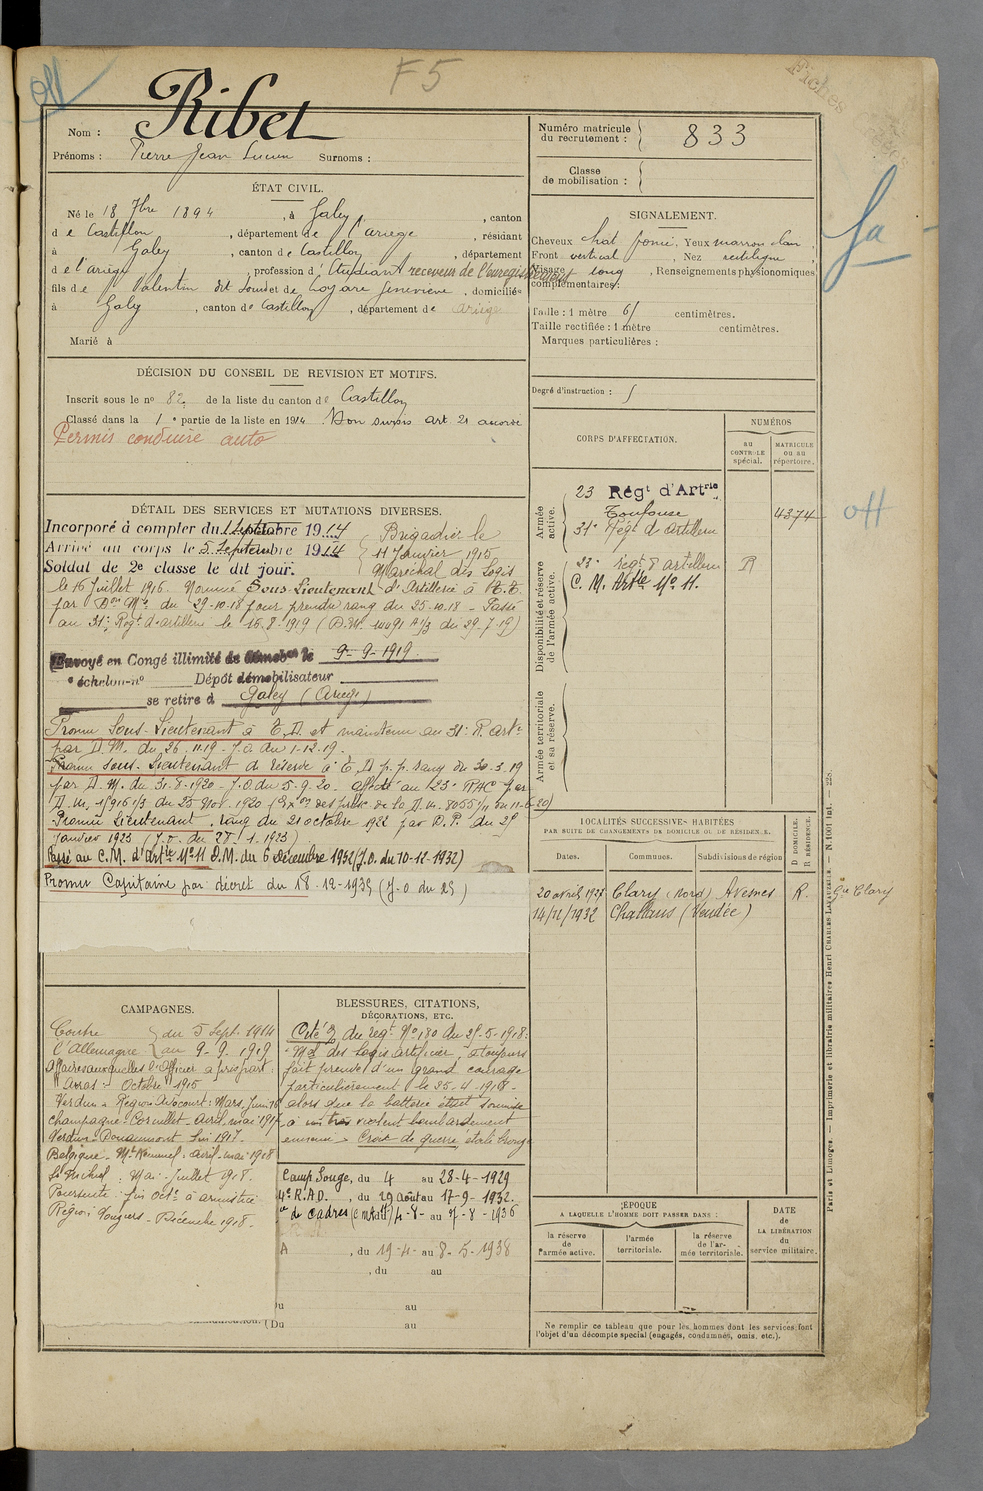 off
F5
Fiches
Nom : Ribet
Prénoms : Pierre Jean Lucien Surnoms :
Numéro matricule du recrutement : 833
Classe de mobilisation :
ÉTAT CIVIL.
Né le 18 7bre 1894, à Galey, canton
de Castillon, département de l'ariege, résidant
à Galey, canton de Castillon, département
de l'ariège, profession d'étudiant receveur de l'enregistrement
fils de Valentin dit Loud et de Geneviève, domiciliés
à Galey, canton de Castillon, département de ariège
Marié à
SIGNALEMENT.
Cheveux chat foncé, Yeux marron clair,
Front vertical, Nez rectiligne,
Visage long, Renseignements physionomiques
complémentaires :
Taille : 1 mètre 61 centimètres.
Taille rectifiée : 1 mètre centimètres.
Marques particulières :
Degré d'instruction : 5
DÉCISION DU CONSEIL DE REVISION ET MOTIFS.
Inscrit sous le no 82 de la liste du canton de Castillon
Classé dans la 1e partie de la liste en 1914. Bon sursis art. 21 accordé
Permis conduire auto
CORPS D'AFFECTATION.
NUMÉROS
au CONTROLE spécial.
MATRICULE ou au répertoire.
Armée active.
23 Régt d'Artrie
Toulouse
4374
31e Régt d'artillerie
off
Disponibilité et réserve de l'armée active.
23e régt d'artillerie R
C. M. Artie No 11.
Armée territoriale et sa réserve.
DÉTAIL DES SERVICES ET MUTATIONS DIVERSES.
Incorporé à compter du 1 Septembre 1914
Arrivé au corps le 5 Septembre 1914
Soldat de 2e classe le dit jour.
Brigadier le
11 Janvier 1915
Maréchal des Logis
le 16 Juillet 1916. Nommé Sous-Lieutenant d'Artillerie à T.T.
par Don Mle du 29-10-18 pour prendre rang du 25-10-18 - Passé
au 31e Régt d'artillerie le 15-8-1919 (D.M. 10091 A 1/3 du 29-7-19)
Envoyé en Congé illimité de démobon le 9-9-1919
e échelon-no Dépôt démobilisateur
se retire à Galey (Ariège)
Promu Sous-Lieutenant à T.D. et maintenu au 31e R. Artie
par D.M. du 26-11-19 - J.O. du 1-12-19.
Promu Sous-Lieutenant de réserve à T.D. p.p. rang du 30-3-19
par D.M. du 31-8-1920 - J.O. du 5-9-20. affecté au 23e RAC par
D.M. 1/9161/3 du 25 Nov. 1920 (Exon des presc. de la D.M. 8055 1/11 du 11-6-20)
Promu Lieutenant, rang du 21 octobre 1922 par D.P. du 25
janvier 1923 (J.O. du 27-1-1923)
Passé au C.M. d'artie No 11 D.M. du 6 Décembre 1932 (J.O. du 10-12-1932)
Promu Capitaine par décret du 18-12-1935 (J.O du 25)
LOCALITÉS SUCCESSIVES HABITÉES
PAR SUITE DE CHANGEMENTS DE DOMICILE OU DE RÉSIDENCE.
Dates.
Communes.
Subdivisions de région
D. DOMICILE. R. RÉSIDENCE.
20 avril 1927 Clary (Nord) Avesnes R. Gie Clary
14/11/1932 Challans (Vendée)
CAMPAGNES.
Contre l'Allemagne du 5 Sept. 1914
au 9-9-1919
Affaires auxquelles l'Officier a pris part :
Arras : Octobre 1915
Verdun - Région Avocourt : Mars, Juin 16
Champagne - Cornillet - Avril, mai 1917
Verdun - Douaumont fin 1917.
Belgique - Mt Kemmel : avril - mai 1918
St Mihiel : Mai - Juillet 1918.
Poursuite : fin Octe à armistice
Région Vouziers - Décembre 1918.
BLESSURES, CITATIONS,
DÉCORATIONS, ETC.
Cité O. du régt No 180 du 25-5-1918 :
"Mal des Logis artificier, a toujours
fait preuve d'un grand courage
particulièrement le 25-4-1918
alors que la batterie était soumise
à un très violent bombardement
ennemi" Croix de guerre, étoile bronze
Camp Souge, du 4 au 28-4-1929
4e R.A.D., du 29 août au 17-9-1932.
de cadres (C M Art 11) 4-8- au 7-8-1936
A , du 19-4- au 8-5-1938
, du au
Du au
(Du au
ÉPOQUE
A LAQUELLE L'HOMME DOIT PASSER DANS :
la réserve de l'armée active.
l'armée territoriale.
la réserve de l'armée territoriale.
DATE DE LA LIBÉRATION du service militaire.
Ne remplir ce tableau que pour les hommes dont les services font
l'objet d'un décompte spécial (engagés, condamnés, omis, etc.).
Paris et Limoges. — Imprimerie et librairie militaires Henri CHARLES-LAVAUZELLE. — N. 1001 Int. — 228.